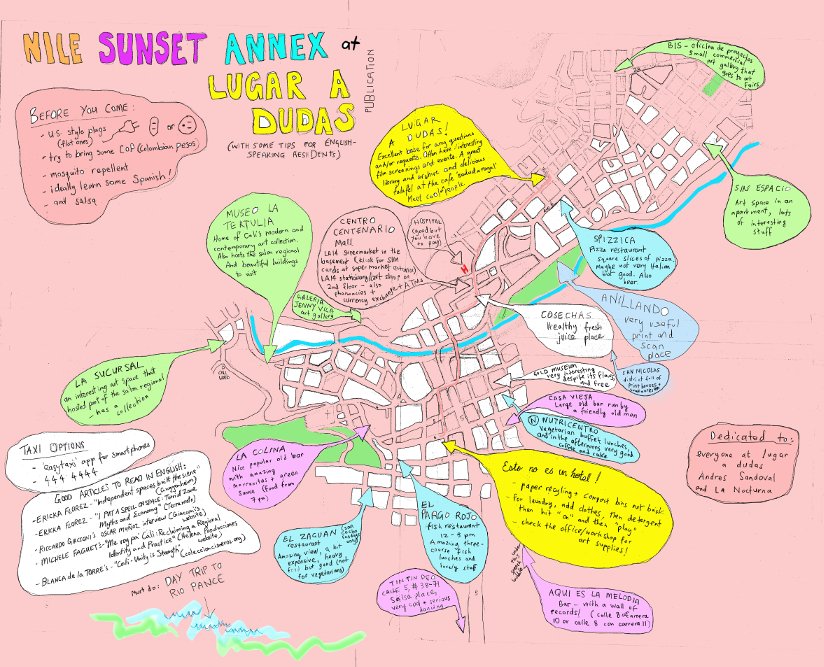 NILE SUNSET ANNEX at
LUGAR A
DUDAS
PUBLICATION
(WITH SOME TIPS FOR ENGLISH-
SPEAKING RESIDENTS)
BEFORE YOU COME:
- U.S. style plugs
(flat ones)
or
- try to bring some COP (Colombian pesos)
- mosquito repellent
- ideally learn some Spanish!
- and salsa
BIS - oficina de proyectos
Small commercial
art gallery that
goes to art
fairs
LUGAR
A DUDAS!
Excellent base for any questions
and/or requests. Often have interesting
film screenings and events. A great
library and archive and delicious
falafel at the cafe
Meet cool people
SIN ESPACIO
Art space in an
apartment, lots
of interesting
stuff
MUSEO LA
TERTULIA
Home of Cali's modern and
contemporary art collection.
Also hosts the salon regional
And beautiful buildings
to visit
CENTRO
CENTENARIO
Mall
LA14 supermarket in the
basement
cards at supermarket entrance)
LA14 stationary/art shop on
2nd floor - also
pharmacies +
currency exchange + ATMs
HOSPITAL
(good but
you have
to pay)
H
GALERIA
JENNY VILA
art gallery
SPIZZICA
Pizza restaurant
square slices of pizza.
Maybe not very Italian
but good. Also
beer.
ANILLANDO
very useful
print and
scan
place
COSECHAS
Healthy fresh
juice place
GOLD MUSEUM
very interesting
despite its flaws
and free
SAN NICOLAS
district full of
CASA VIEJA
Large old bar run by
a friendly old man
NUTRICENTRO
Vegetarian buffet lunches,
and in the afternoons very good
coffee and cake
LA SUCURSAL
an interesting art space that
hosted part of the salon regional
- has a
collection
TAXI OPTIONS
- easytaxi app for smartphones
- 444 4444
GOOD ARTICLES TO READ IN ENGLISH:
- ERICKA FLOREZ - "Independent spaces built the scene"
(Guggenheim)
- ERICKA FLOREZ - "I PUT A SPELL ON SHAPE: Torrid Zone
Myths and Economy" (Terremoto)
- RICCARDO GIACCONI'S OSCAR MUÑOZ interview (Giacconi's
website)
- MICHELE FAGUET's
Cali: Reclaiming a Regional
Identity and Practice" (Helena Producciones
website)
- BLANCA de la TORRE's - "Cali: Unity is Strength" (coleccioncisneros.org)
must do: DAY TRIP TO
RIO PANCE
LA COLINA
Nice popular old bar
with amazing
marranitas + green
sauce (food from
7 pm)
EL ZAGUAN
restaurant
Amazing view, a bit
expensive, heavy
food but good (not
for vegetarians)
EL
PARGO ROJO
fish restaurant
12 - 3 pm
Amazing three-
course fish
lunches and
lovely staff
Esto no es un hostel!
- paper recycling + compost bins out back
- For laundry, add clothes, then detergent
then hit "on" and then "play"
- check the office/workshop for
art supplies!
Dedicated to:
everyone at lugar
a dudas
Andres Sandoval
and La Nocturna
TIN TIN DEO
calle 5, # 38-71
Salsa place,
very cool + serious
dancing
AQUI ES LA MELODIA
Bar - with a wall of
records! (calle 8 carrera
10 or calle 8 con carrera 11)